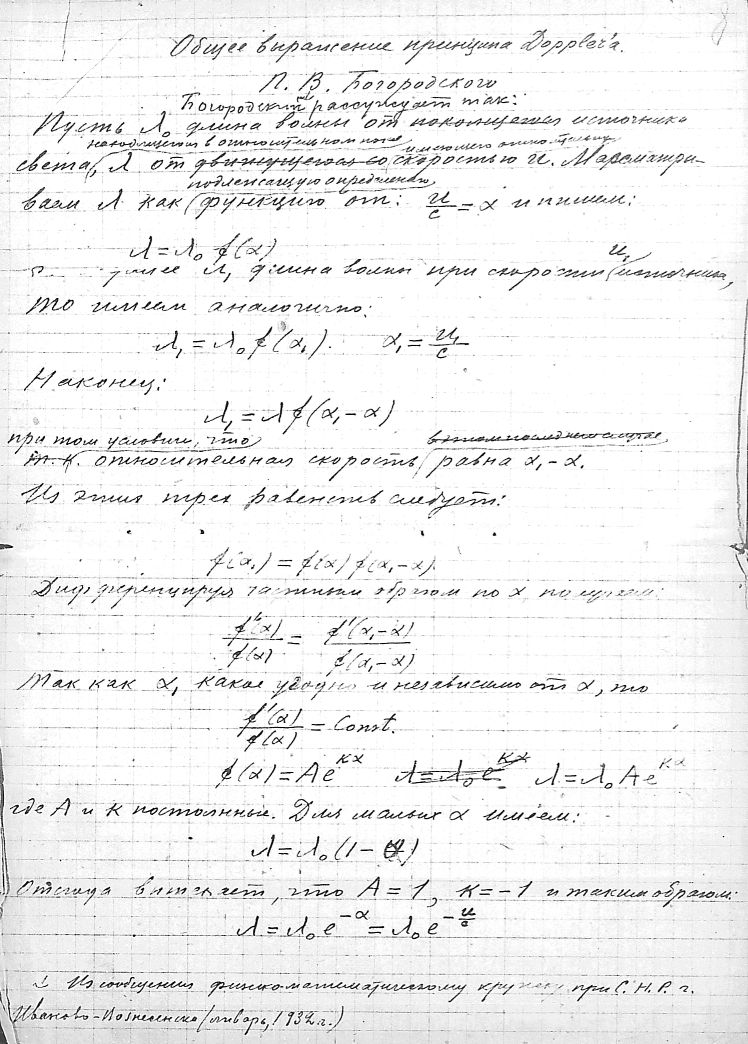 8
Общее выражение принципа Doppler'а.
П. В. Богородского
Богородский рассуждает так:
Пусть λ₀ длина волны от покоящегося источника
находящегося в относительном покое
света, λ от движущегося со скоростью u. Рассматри-
подлежащую определению
ваем λ как функцию от: u/c = α и пишем:
λ = λ₀ f(α)
λ₁ длина волны при скорости u₁ источника,
то имеем аналогично:
λ₁ = λ₀ f(α₁). α₁ = u₁/c
Наконец:
λ₁ = λ f(α₁ - α)
при том условии, что в этом последнем случае
т. к. относительная скорость равна α₁ - α.
Из этих трех равенств следует:
f(α₁) = f(α) f(α₁ - α)
Дифференцируя частным образом по α получаем:
f'(α)/f(α) = f'(α₁ - α)/f(α₁ - α)
Так как α₁ какое угодно и независимо от α, то
f'(α)/f(α) = Const.
f(α) = Ae^{κα} λ = λ₀e^{κα} λ = λ₀Ae^{κα}
где A и κ постоянные. Для малых α имеем:
λ = λ₀(1 - α)
Отсюда вытекает, что A = 1, κ = -1 и таким образом:
λ = λ₀e^{-α} = λ₀e^{-u/c}
Из сообщения физико математическому кружку при С. Н. Р. г.
Иваново-Вознесенска (январь, 1932 г.)